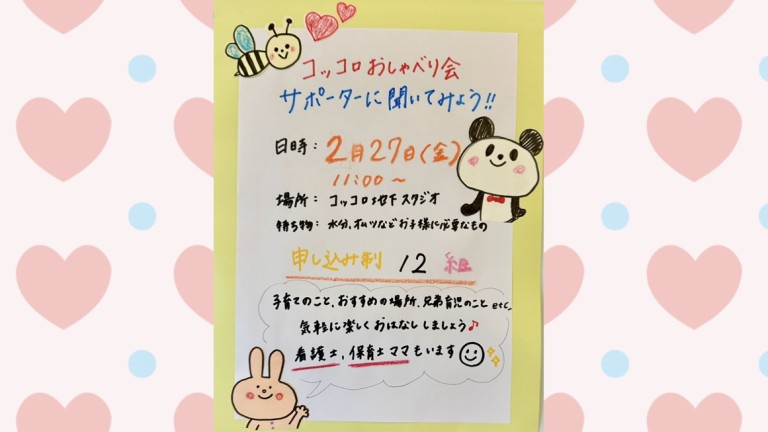 コッコロおしゃべり会
サポーターに聞いてみよう!!
日時: 2月27日(金)
11:00〜
場所: コッコロ地下スタジオ
持ち物: 水分、オムツなどお子様に必要なもの
申し込み制 12組
子育てのこと、おすすめの場所、兄弟育児のこと etc,
気軽に楽しくおはなししましょう♪
看護士、保育士ママもいます